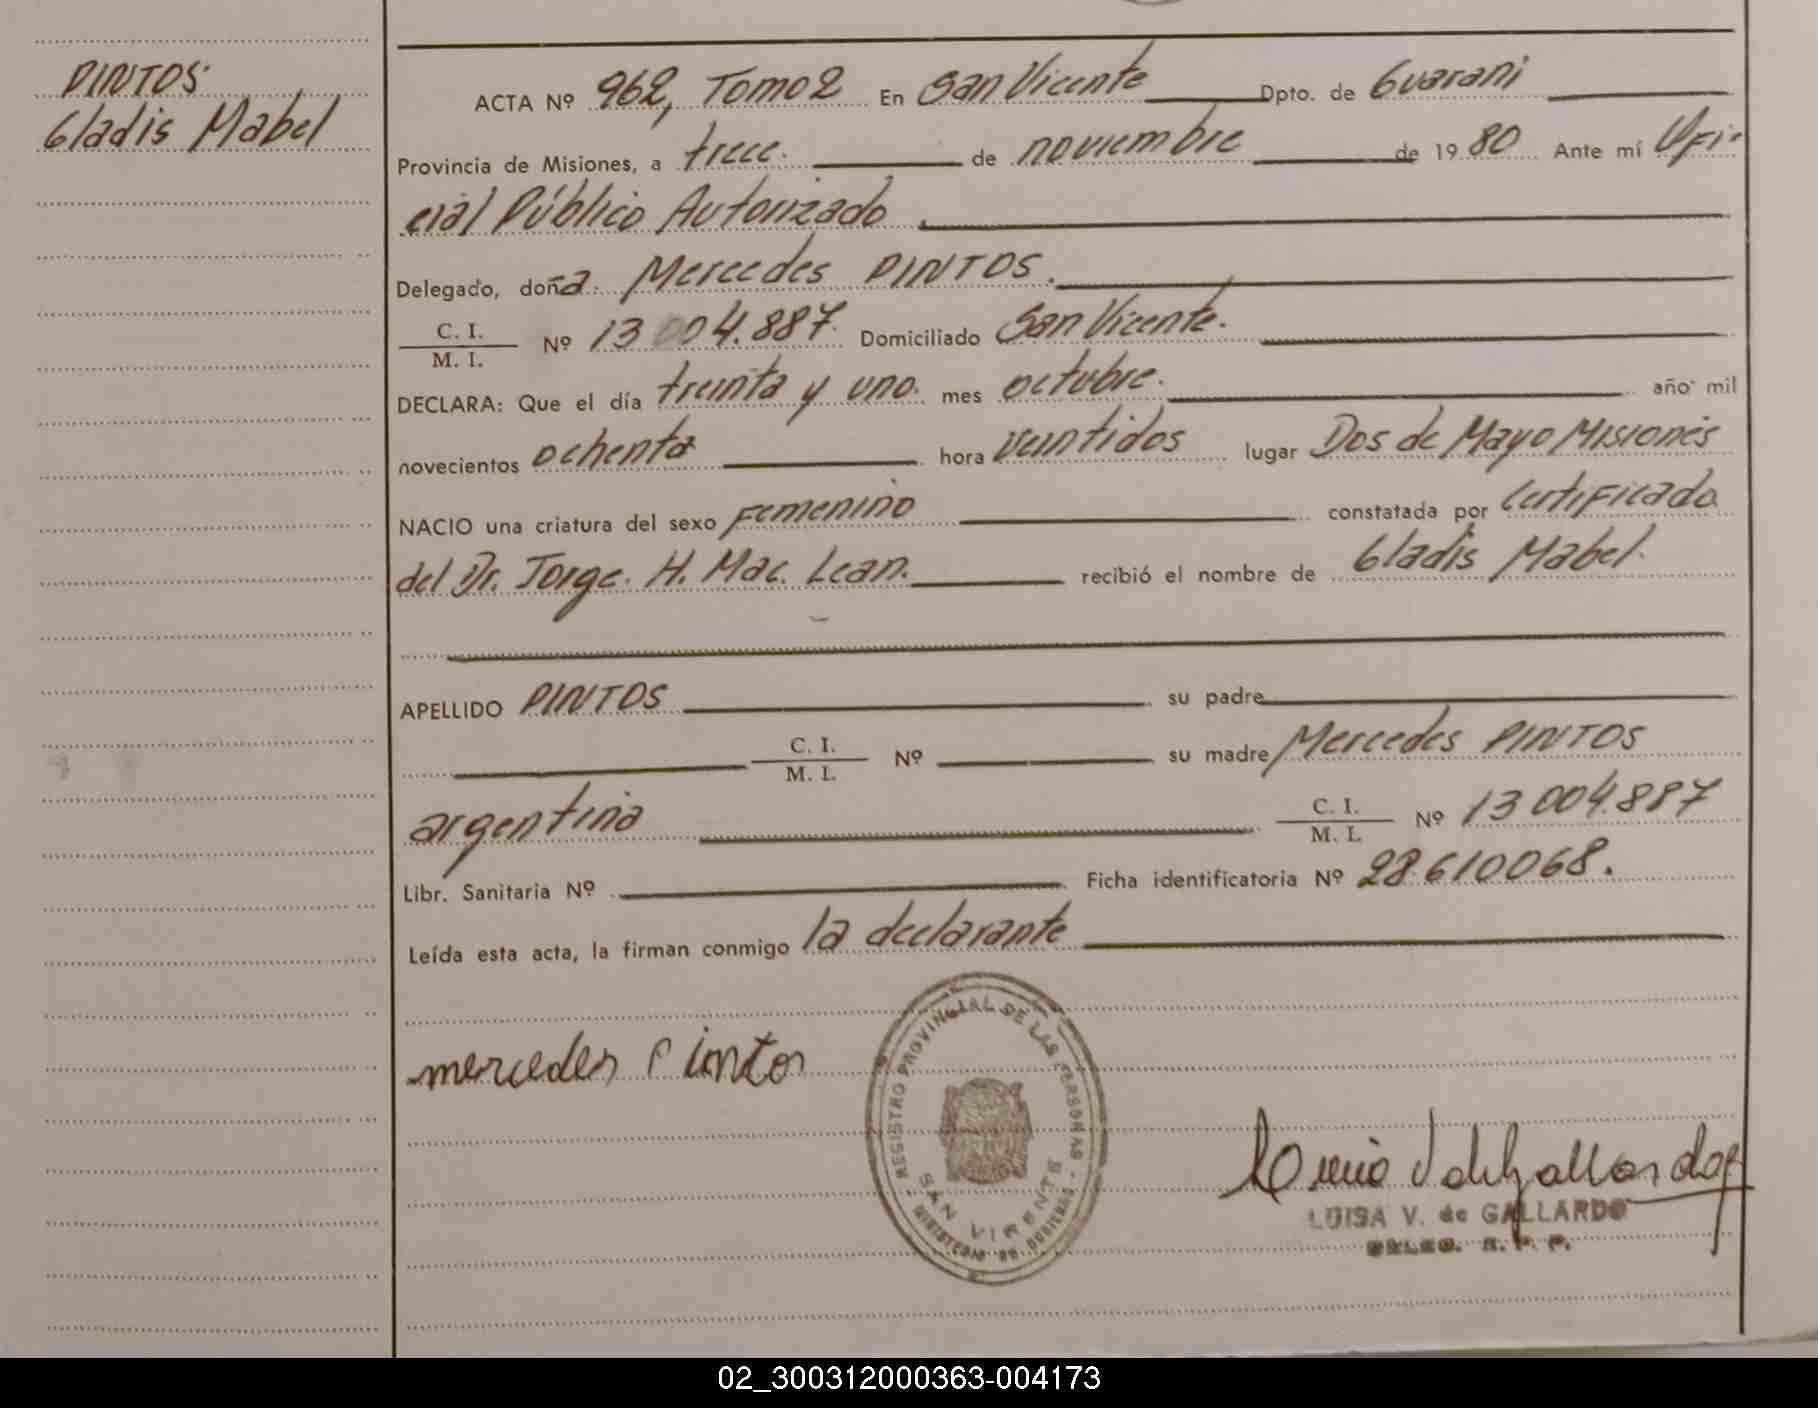 PINTOS
Gladis Mabel
ACTA Nº 962, Tomo 2 En San Vicente Dpto. de Guarani
Provincia de Misiones, a trece. de noviembre de 1980 Ante mí Ofi-
cial Público Autorizado
Delegado, doña. Mercedes PINTOS.
C. I.
M. I. Nº 13 004.887. Domiciliado San Vicente.
DECLARA: Que el día treinta y uno. mes octubre. año mil
novecientos ochenta hora veintidos lugar Dos de Mayo Misiones
NACIO una criatura del sexo Femenino constatada por Certificado
del Dr. Jorge. H. Mac. Lean. recibió el nombre de Gladis Mabel.
APELLIDO PINTOS su padre
C. I.
M. I. Nº su madre Mercedes PINTOS
argentina C. I.
M. I. Nº 13 004.887
Libr. Sanitaria Nº Ficha identificatoria Nº 28.610068.
Leída esta acta, la firman conmigo la declarante
mercedes Pintos
REGISTRO PROVINCIAL DE LAS PERSONAS
SAN VICENTE
MINISTERIO DE GOBIERNO
LUISA V. de GALLARDO
DELEG. R. P. P.
02_300312000363-004173